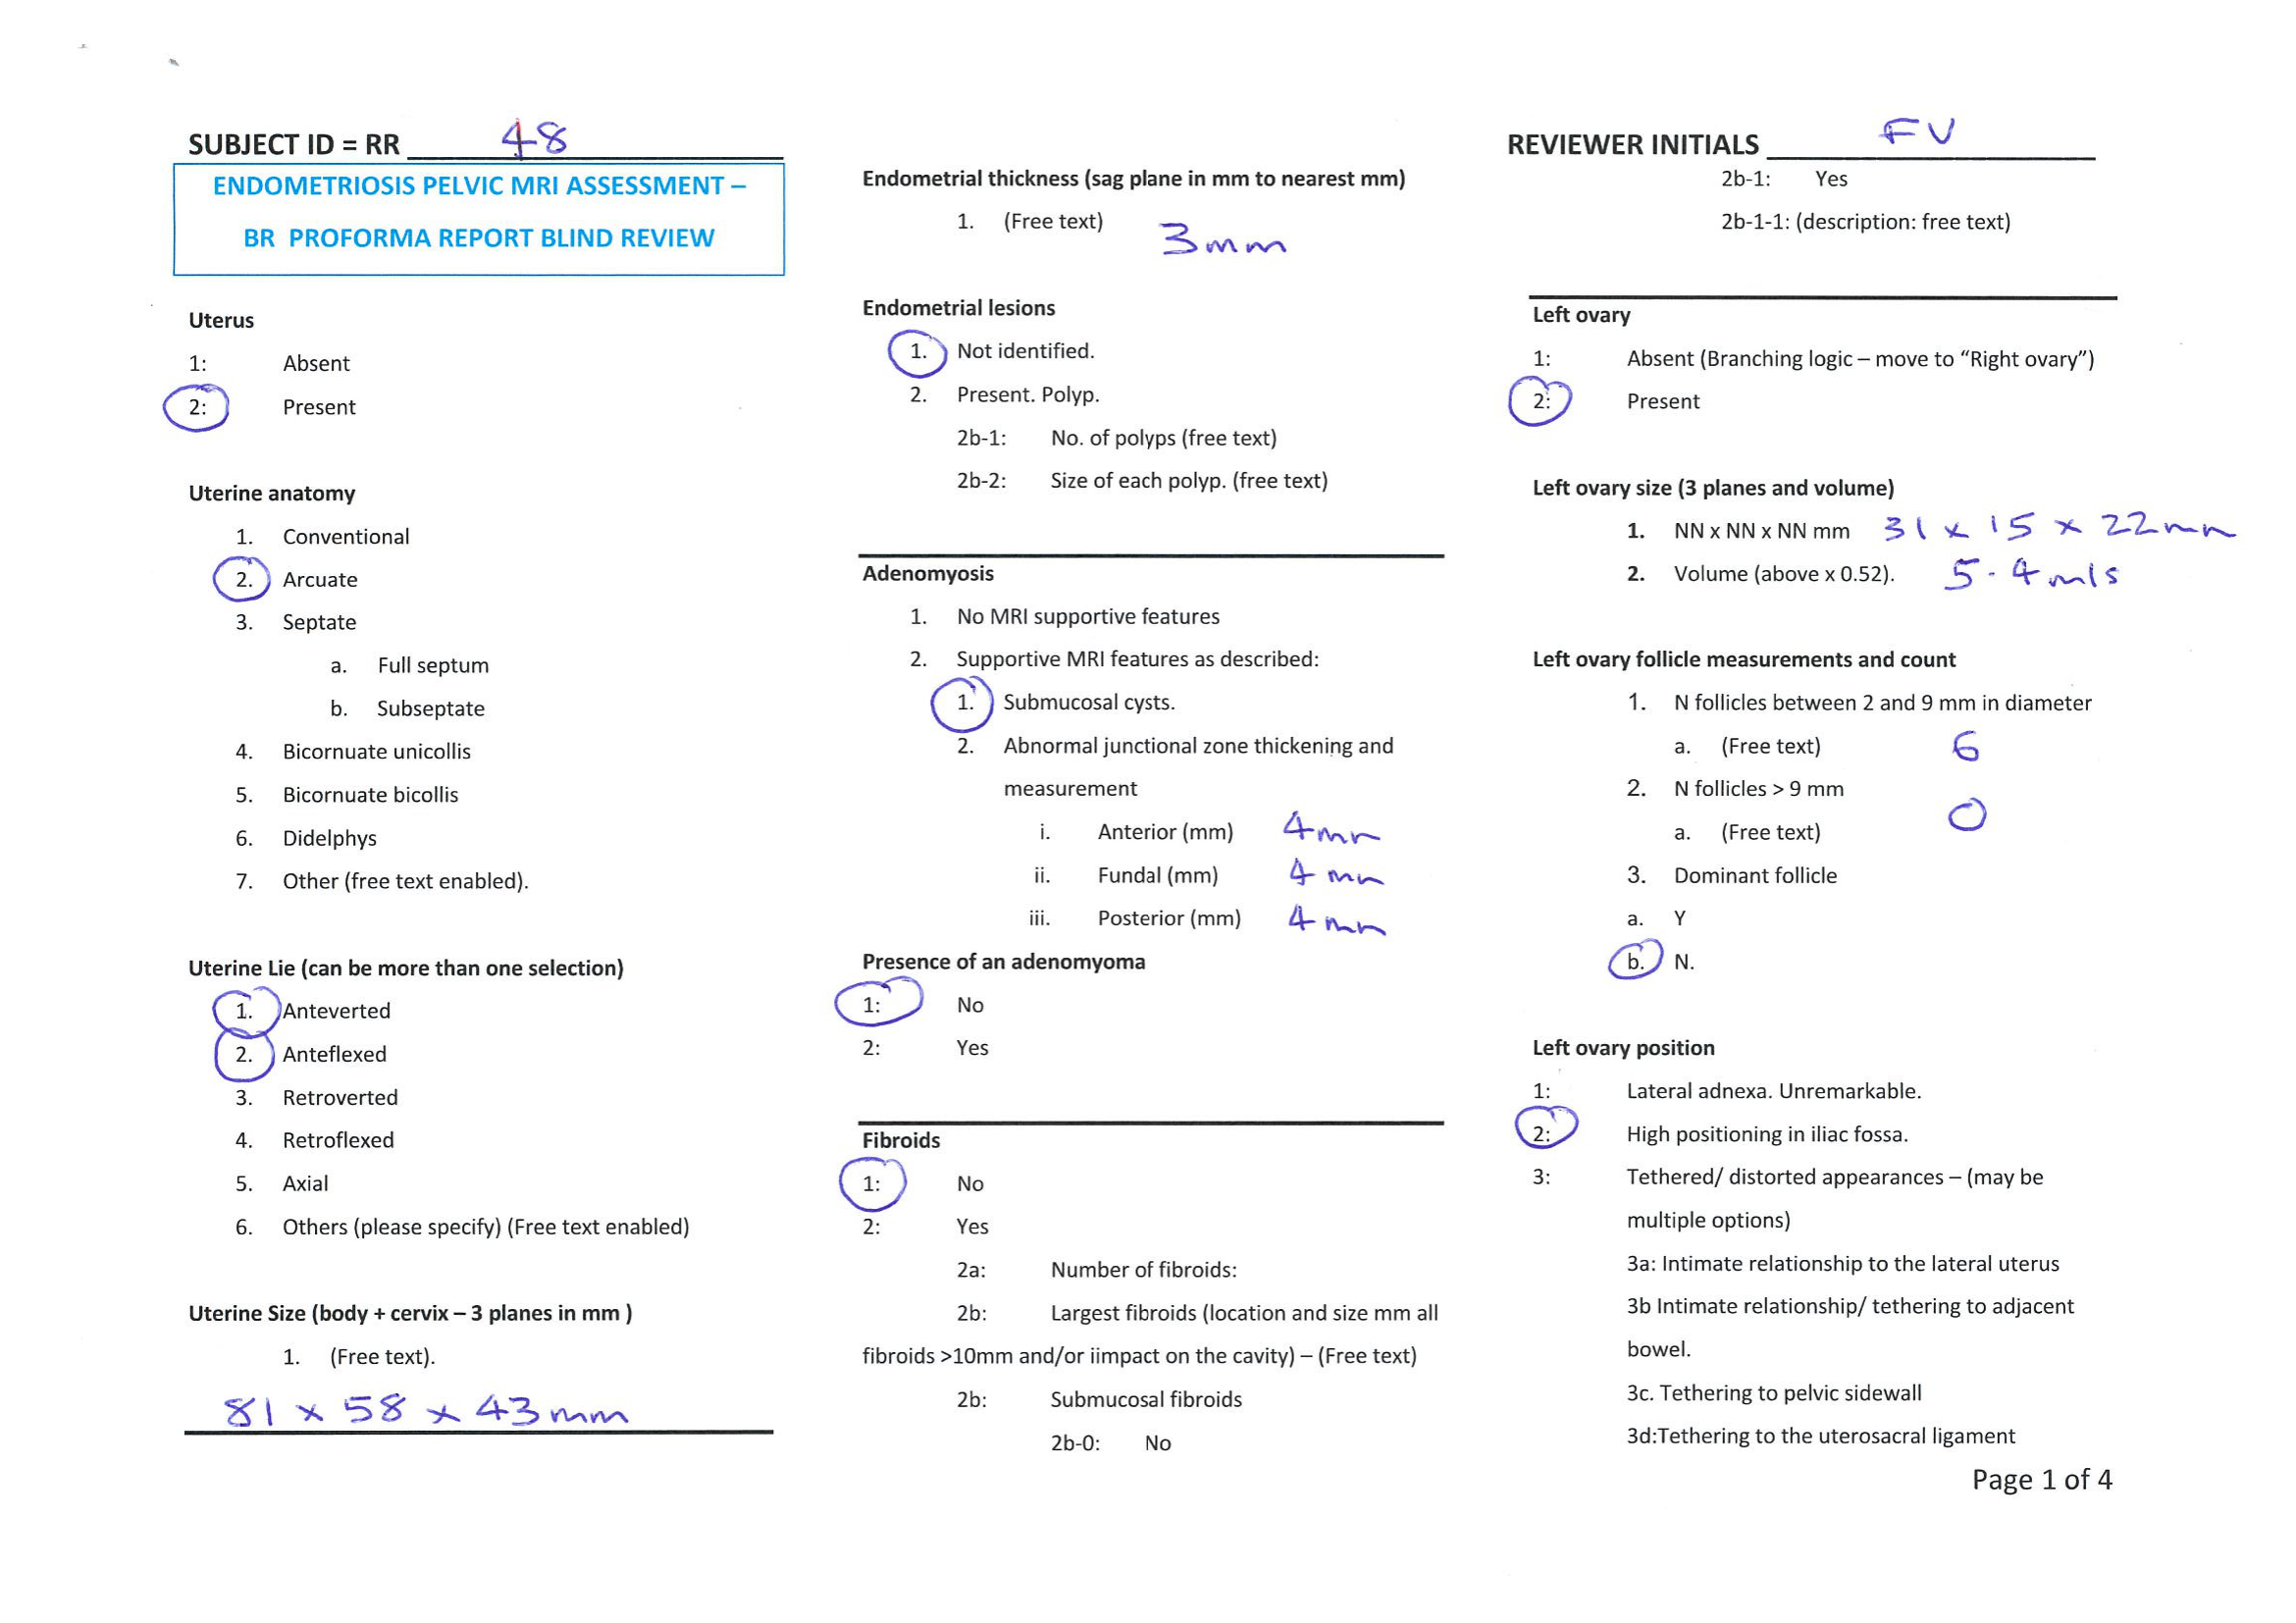 SUBJECT ID = RR 48
ENDOMETRIOSIS PELVIC MRI ASSESSMENT –
BR PROFORMA REPORT BLIND REVIEW
Uterus
1: Absent
2: Present
Uterine anatomy
1. Conventional
2. Arcuate
3. Septate
a. Full septum
b. Subseptate
4. Bicornuate unicollis
5. Bicornuate bicollis
6. Didelphys
7. Other (free text enabled).
Uterine Lie (can be more than one selection)
1. Anteverted
2. Anteflexed
3. Retroverted
4. Retroflexed
5. Axial
6. Others (please specify) (Free text enabled)
Uterine Size (body + cervix – 3 planes in mm )
1. (Free text).
81 x 58 x 43mm
Endometrial thickness (sag plane in mm to nearest mm)
1. (Free text) 3mm
Endometrial lesions
1. Not identified.
2. Present. Polyp.
2b-1: No. of polyps (free text)
2b-2: Size of each polyp. (free text)
Adenomyosis
1. No MRI supportive features
2. Supportive MRI features as described:
1. Submucosal cysts.
2. Abnormal junctional zone thickening and
measurement
i. Anterior (mm) 4mm
ii. Fundal (mm) 4mm
iii. Posterior (mm) 4mm
Presence of an adenomyoma
1: No
2: Yes
Fibroids
1: No
2: Yes
2a: Number of fibroids:
2b: Largest fibroids (location and size mm all
fibroids >10mm and/or iimpact on the cavity) – (Free text)
2b: Submucosal fibroids
2b-0: No
REVIEWER INITIALS FV
2b-1: Yes
2b-1-1: (description: free text)
Left ovary
1: Absent (Branching logic – move to “Right ovary”)
2: Present
Left ovary size (3 planes and volume)
1. NN x NN x NN mm 31 x 15 x 22mm
2. Volume (above x 0.52). 5.4mls
Left ovary follicle measurements and count
1. N follicles between 2 and 9 mm in diameter
a. (Free text) 6
2. N follicles > 9 mm
a. (Free text) 0
3. Dominant follicle
a. Y
b. N.
Left ovary position
1: Lateral adnexa. Unremarkable.
2: High positioning in iliac fossa.
3: Tethered/ distorted appearances – (may be
multiple options)
3a: Intimate relationship to the lateral uterus
3b Intimate relationship/ tethering to adjacent
bowel.
3c. Tethering to pelvic sidewall
3d:Tethering to the uterosacral ligament
Page 1 of 4